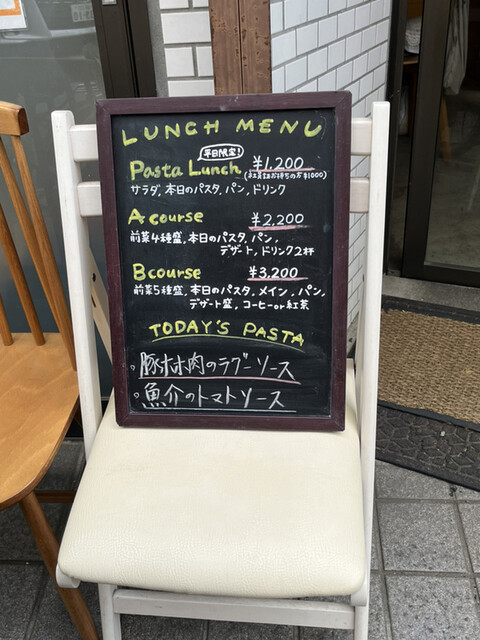 LUNCH MENU
平日限定!
Pasta Lunch ¥1,200
(社員証お持ちの方¥1000)
サラダ, 本日のパスタ, パン, ドリンク
A course ¥2,200
前菜4種盛, 本日のパスタ, パン,
デザート, ドリンク2杯
B course ¥3,200
前菜5種盛, 本日のパスタ, メイン, パン,
デザート盛, コーヒーor紅茶
TODAY'S PASTA
・豚ホホ肉のラグーソース
・魚介のトマトソース